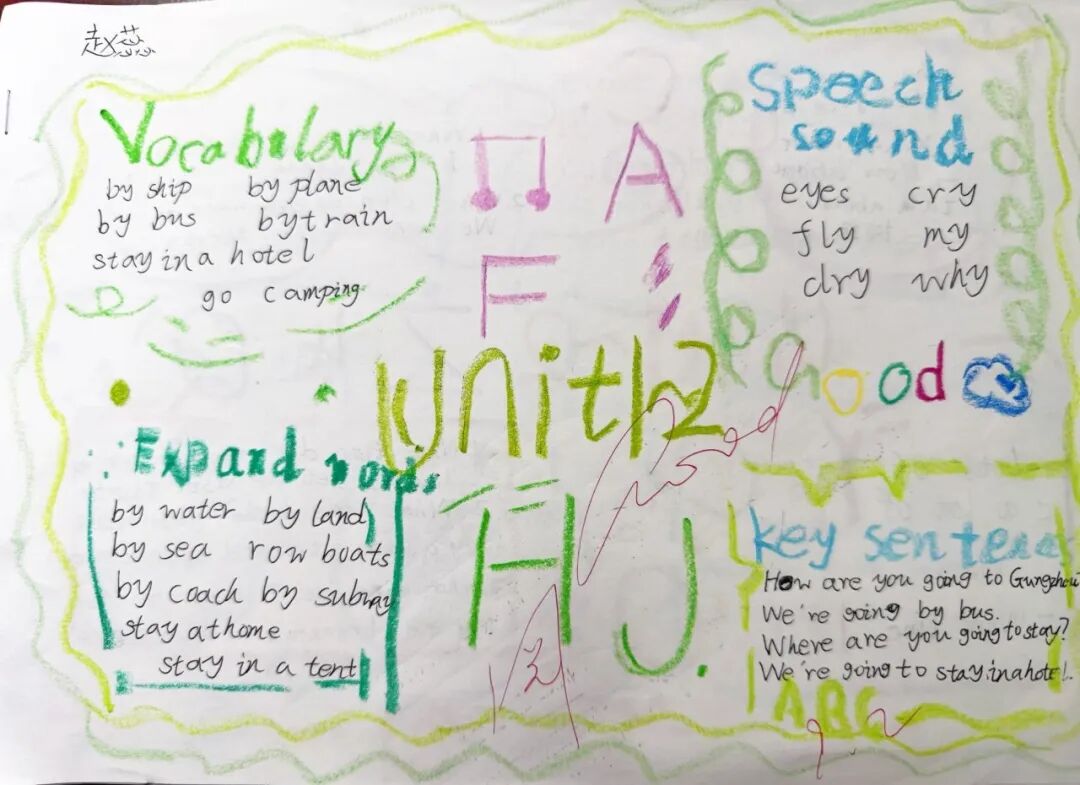 赵蕊
Vocabulary
by ship by plane
by bus by train
stay in a hotel
go camping
A
F
Speech
sound
eyes cry
fly my
dry why
Unit12
Good
Good
Expand words
by water by land
by sea row boats
by coach by subway
stay at home
stay in a tent
H J
key senten
How are you going to Gungzhou?
We're going by bus.
Where are you going to stay?
We're going to stay in a hotel.
ABC